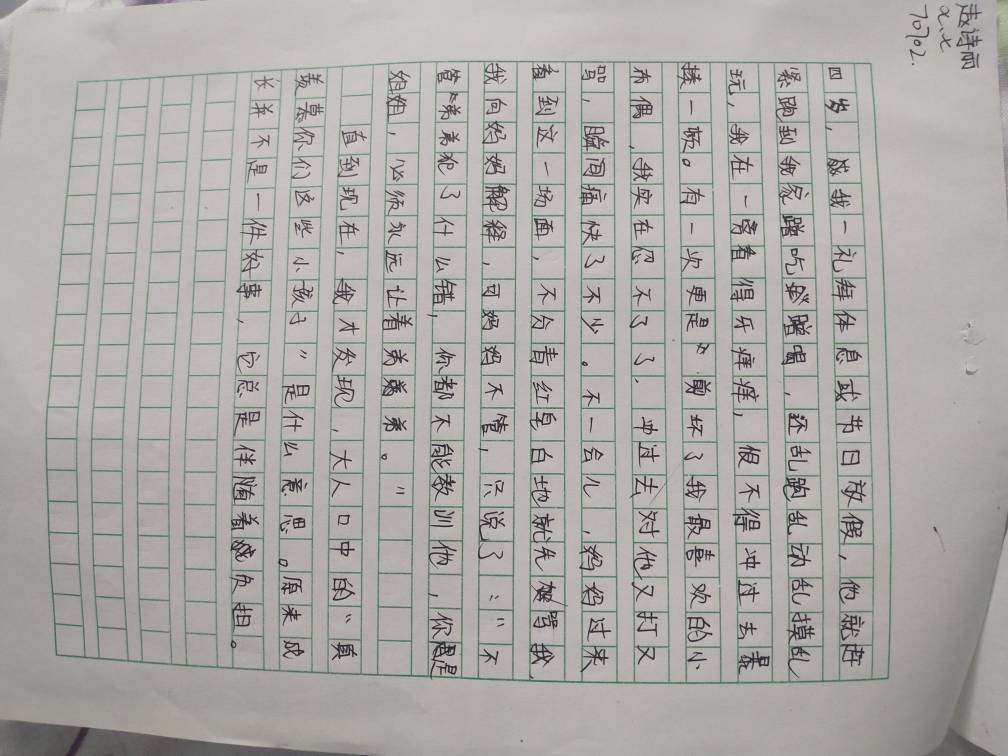 赵诗雨
70702.
四岁，成我一礼拜体息或节日放假，他就赶
紧跑到我家蹭吃蹭喝，还乱跑乱动乱摸乱
玩，我在一旁看得牙痒痒，恨不得冲过去暴
揍一顿。有一次更是剪坏了我最喜欢的小
布偶，我实在忍不了了.冲过去对他又打又
骂，瞬间痛快了不少。不一会儿，妈妈过来
看到这一场面，不分青红皂白地就先骂我，
我向妈妈解释，可妈妈不管，只说了：“不
管弟弟犯了什么错，你都不能教训他，你是
姐姐，必须永远让着弟弟。”
直到现在，我才发现，大人口中的“真
羡慕你们这些小孩子”是什么意思。原来成
长并不是一件好事，它总是伴随着负担。